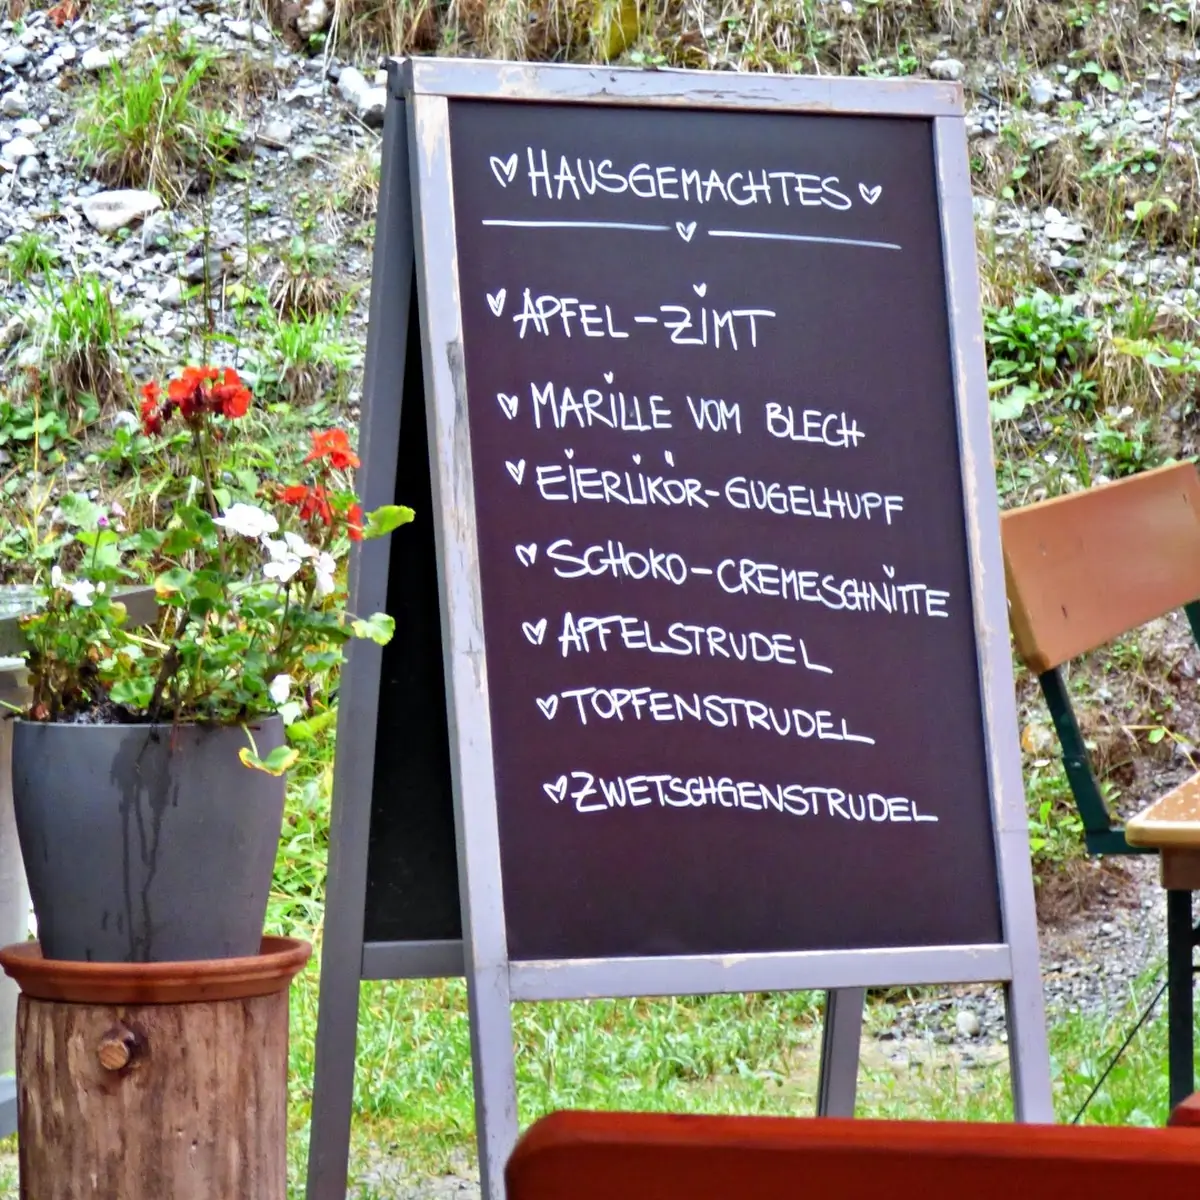 HAUSGEMACHTES
APFEL-ZIMT
MARILLE VOM BLECH
EIERLIKÖR-GUGELHUPF
SCHOKO-CREMESCHNITTE
APFELSTRUDEL
TOPFENSTRUDEL
ZWETSCHGENSTRUDEL